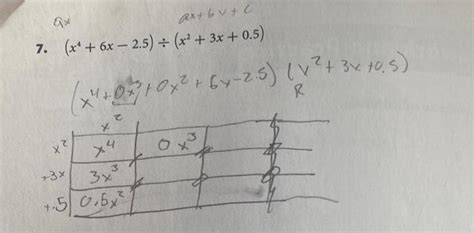 ax ax+bv+c
7. (x⁴ + 6x − 2.5) ÷ (x² + 3x + 0.5)
(x⁴+0x³+0x²+6x-2.5) (x²+3x+0.5)
R
x²
x² x⁴ 0x³
+3x 3x³
+.5 0.5x²